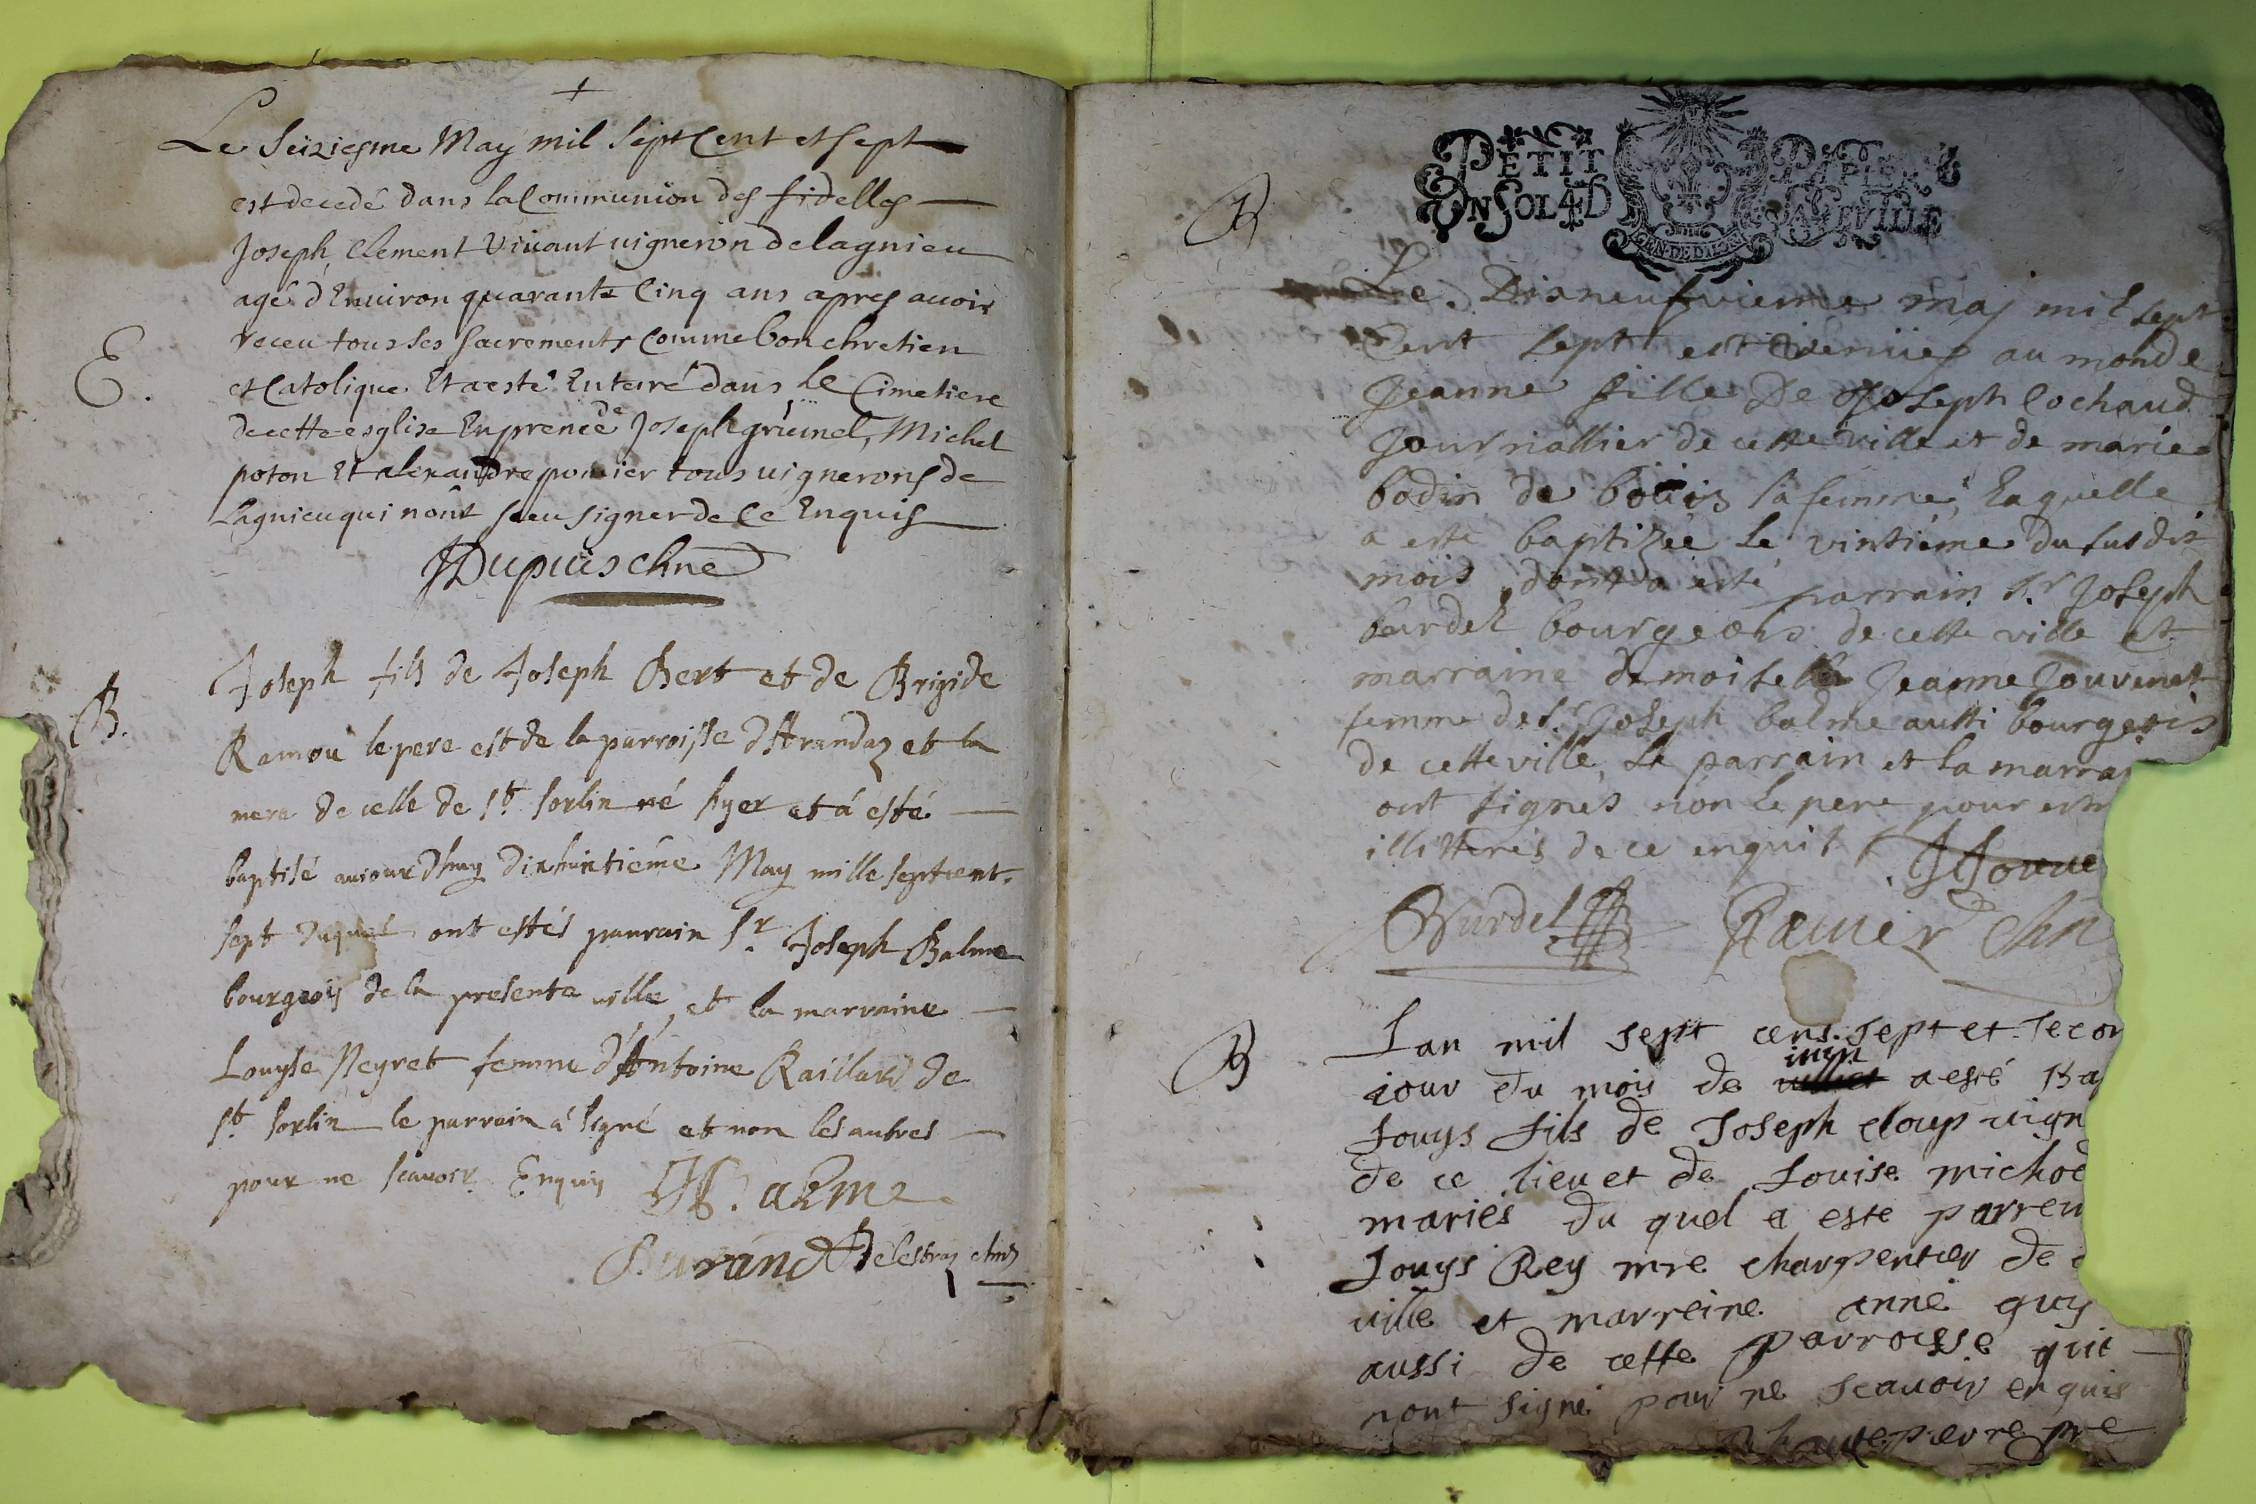 +
Le Seiziesme May mil Sept Cent et Sept
est decedé dans la Communion des fidelles
Joseph Clement Vivant vigneron de lagnieu
agé d'Environ quarante Cinq ans apres avoir
receu tous ses sacrements Comme bon chretien
E.
et Catolique Et a esté Enterré dans le Cimetiere
de cette esglise En prence de Joseph grumel, Michel
poton Et alexandre ponsier tous vignerons de
Lagnieu qui nont sceu signer de Ce Enquis
JDupuis chne
B.
Joseph fils de Joseph Bert et de Brigide
Ramou le pere est de la parroisse d'Arandaz et la
mere de celle de St Sorlin né hyer et á esté
baptisé aujourdhuy dixhuitiéme May mille sept cent
sept duquel ont estés parrain Sr Joseph Balme
bourgeois de la presente ville, et la marraine
Louyse Neyret femme d'Antoine Raillard de
St Sorlin le parrain á signé et non les autres
pour ne scavoir Enquis JB.alme
Durand Delestraz chne
PETIT PAPIER
UN SOL 4 D LA FEVILLE
GEN. DE DIJON
B
Le Disneufvieme maj mil sept
Cent sept est venüe au monde
Jeanne fille De Joseph Cochaud
Journallier de cette ville et de marie
bodin de sa femme, Laquelle
a este baptizée le vintiéme du susdit
mois, dont a esté parrain Sr Joseph
burdel bourgeois de cette ville et
marraine demoiselle Jeanne Jouvenet
femme de Sr Joseph balme aussi bourgeois
de cette ville, le parrain et la marrai
ont signes non le pere pour estr
illitterés de ce enquit JJouve
Burdel Ravier chn
B
Lan mil sept cens sept et secon
juin
jour du mois de a esté Ba
Louys fils de Joseph cloup vign
de ce lieu et de Louise michoe
mariés du quel a este parren
Louys Rey mre charpentier de c
ville et marreine anne guy
aussi de cette parroisse qui
nont signé pour ne scavoir enquis
hautepierre pre